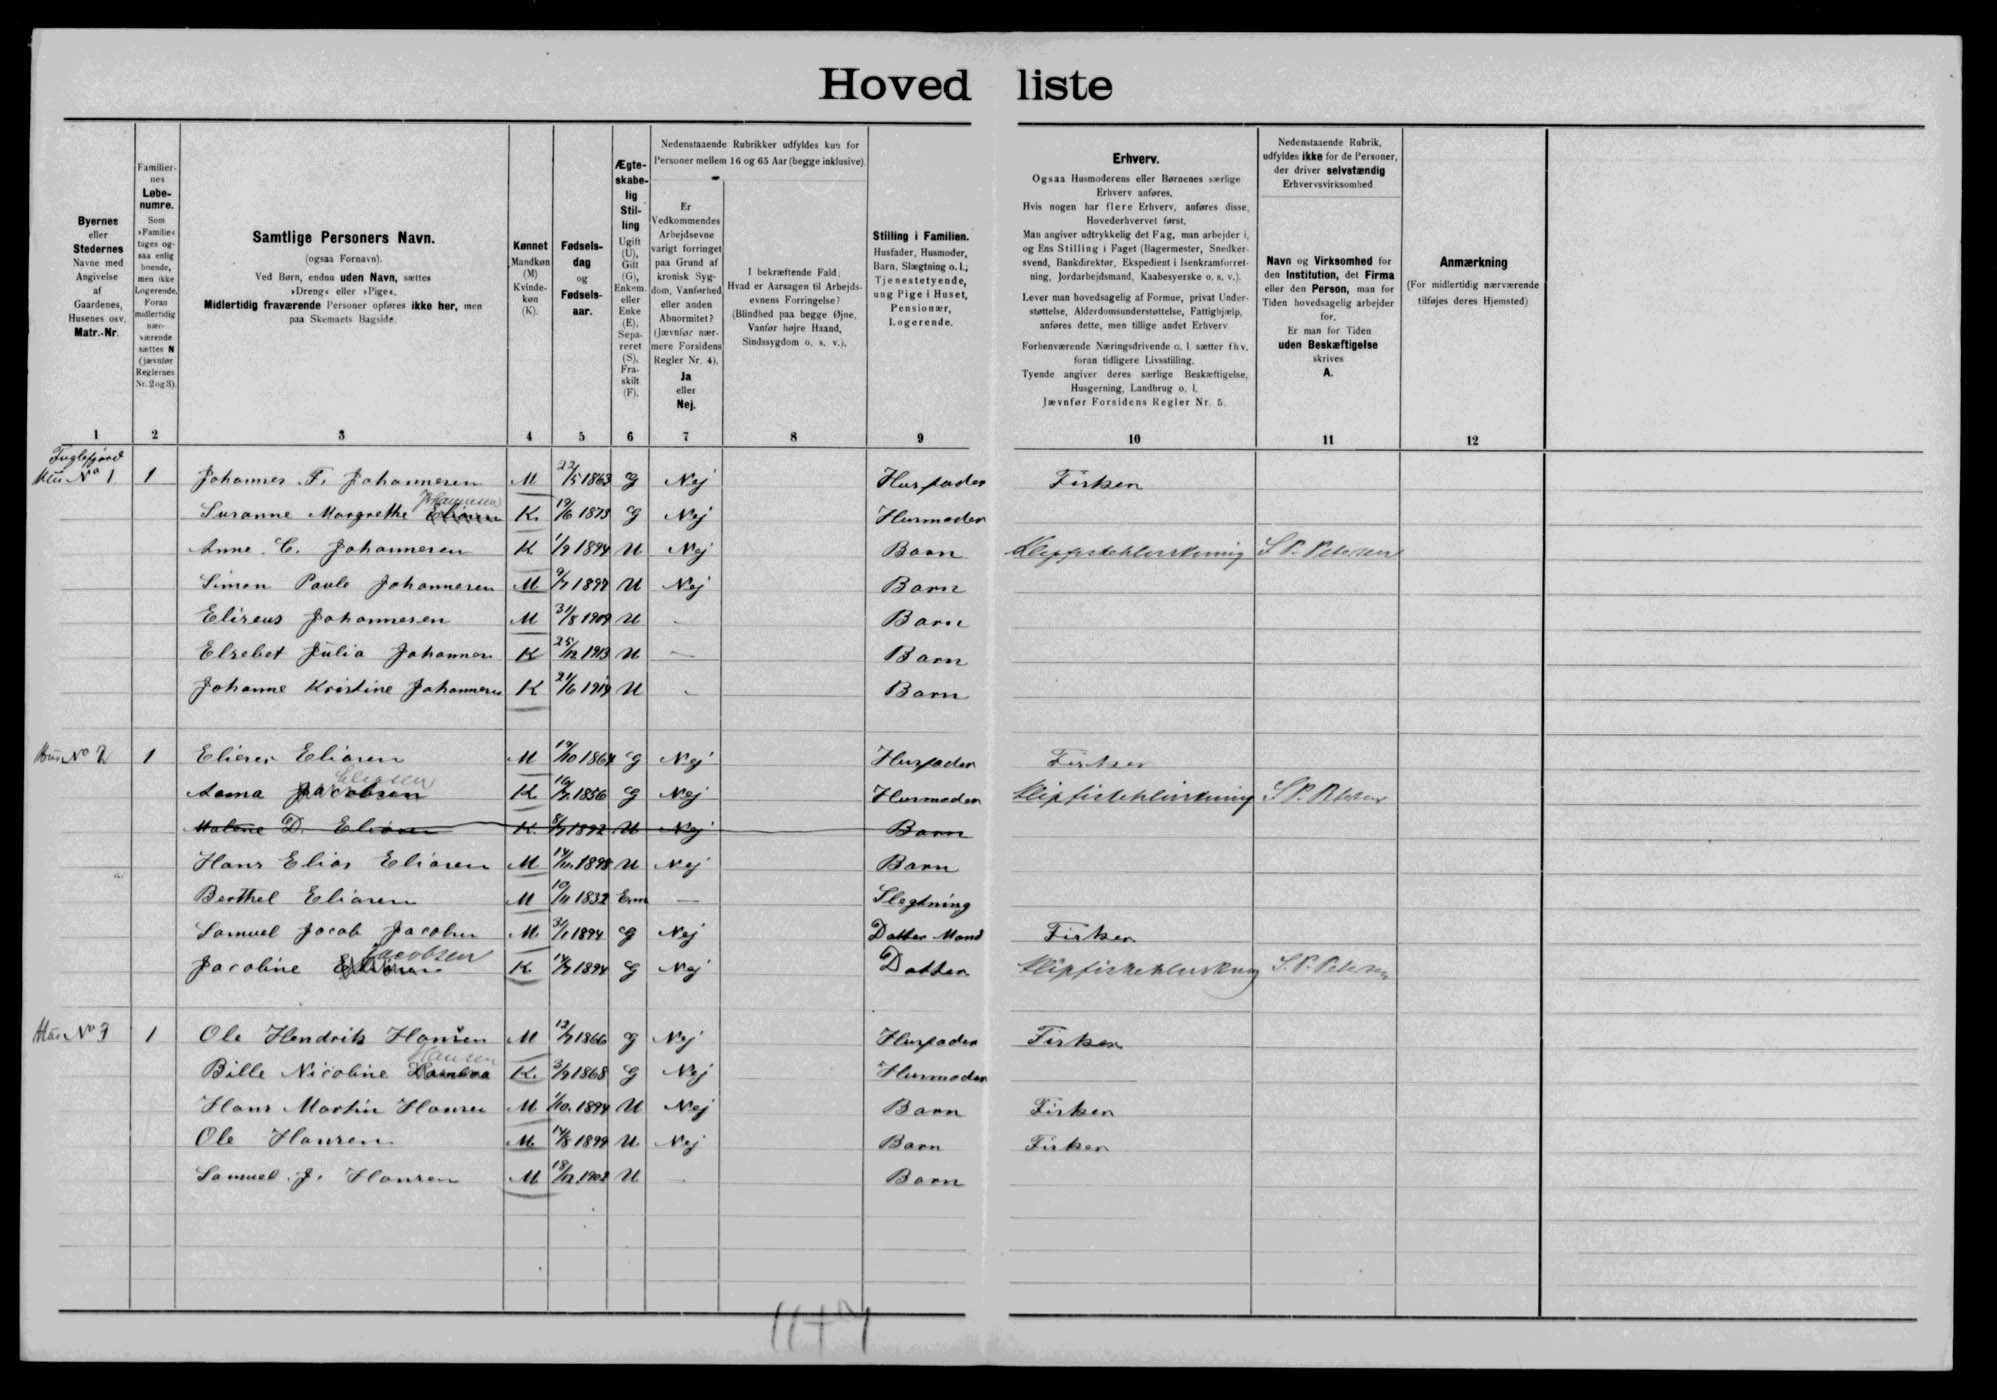 Hovedliste
Byernes
eller
Stedernes
Navne med
Angivelse
af
Gaardenes,
Husenes osv.
Matr.-Nr.
Familier-
nes
Løbe-
numre.
Som
»Familie«
tages og-
saa enlig
boende,
men ikke
Logerende.
Foran
midlertidig
nær-
værende
sættes N
(jævnfør
Reglernes
Nr. 2 og 3).
Samtlige Personers Navn.
(ogsaa Fornavn).
Ved Børn, endnu uden Navn, sættes
»Dreng« eller »Pige«.
Midlertidig fraværende Personer opføres ikke her, men
paa Skemaets Bagside.
Kønnet
Mandkøn
(M)
Kvinde-
køn
(K).
Fødsels-
dag
og
Fødsels-
aar.
Ægte-
skabe-
lig
Stil-
ling
Ugift
(U),
Gift
(G),
Enkem.
eller
Enke
(E),
Sepa-
reret
(S),
Fra-
skilt
(F).
Nedenstaaende Rubrikker udfyldes kun for
Personer mellem 16 og 65 Aar (begge inklusive).
Er
Vedkommendes
Arbejdsevne
varigt forringet
paa Grund af
kronisk Syg-
dom, Vanførhed
eller anden
Abnormitet?
(Jævnfør nær-
mere Forsidens
Regler Nr. 4).
Ja
eller
Nej.
I bekræftende Fald:
Hvad er Aarsagen til Arbejds-
evnens Forringelse?
(Blindhed paa begge Øjne,
Vanfør højre Haand,
Sindssygdom o. s. v.).
Stilling i Familien.
Husfader, Husmoder,
Barn, Slægtning o. l.;
Tjenestetyende,
ung Pige i Huset,
Pensionær,
Logerende.
Erhverv.
Ogsaa Husmoderens eller Børnenes særlige
Erhverv anføres.
Hvis nogen har flere Erhverv, anføres disse,
Hovederhvervet først.
Man angiver udtrykkelig det Fag, man arbejder i,
og Ens Stilling i Faget (Bagermester, Snedker-
svend, Bankdirektør, Ekspedient i Isenkramforret-
ning, Jordarbejdsmand, Kaabesyerske o. s. v.).
Lever man hovedsagelig af Formue, privat Under-
støttelse, Alderdomsunderstøttelse, Fattighjælp,
anføres dette, men tillige andet Erhverv.
Forhenværende Næringsdrivende o. l. sætter fhv.
foran tidligere Livsstilling.
Tyende angiver deres særlige Beskæftigelse,
Husgerning, Landbrug o. l.
Jævnfør Forsidens Regler Nr. 5.
Nedenstaaende Rubrik,
udfyldes ikke for de Personer,
der driver selvstændig
Erhvervsvirksomhed
Navn og Virksomhed for
den Institution, det Firma
eller den Person, man for
Tiden hovedsagelig arbejder
for.
Er man for Tiden
uden Beskæftigelse
skrives
A.
Anmærkning
(For midlertidig nærværende
tilføjes deres Hjemsted)
1 2 3 4 5 6 7 8 9 10 11 12
Fuglefjord
Hus No 1 1 Johannes F. Johannesen M 22/5 1863 G Nej Husfader Fisker
Johannesen
Susanne Margrethe Eliasen K. 19/6 1873 G Nej Husmoder
Anne C. Johannesen K 1/9 1894 U Nej Barn Klipfisktilvirkning S. P. Petersen
Simon Paule Johannesen M 9/7 1897 U Nej Barn
Eliseus Johannesen M 31/8 1909 U - Barn
Elsebet Julia Johannesen K 25/12 1913 U - Barn
Johanne Kristine Johannesen K 21/6 1919 U - Barn
Hus No 2 1 Elieser Eliasen M 19/10 1864 G Nej Husfader Fisker
Eliasen
Anna Jacobsen K. 10/7 1856 G Nej Husmoder Klipfisktilvirkning S. P. Petersen
Malene D. Eliasen K. 8/7 1892 U Nej Barn
Hans Elias Eliasen M 14/11 1898 U Nej Barn
Berthel Eliasen M 10/11 1832 Enm - Slegtning
Samuel Jacob Jacobsen M. 31/1 1894 G Nej Datter Mand Fisker
Jacobsen
Jacobine Eliasen K. 14/7 1894 G Nej Datter Klipfisktilvirkning S. P. Petersen
Hus No 3 1 Ole Hendrik Hansen M 13/7 1866 G Nej Husfader Fisker
Hansen
Bille Nicoline K. 3/7 1868 G Nej Husmoder
Hans Martin Hansen M 1/10 1894 U Nej Barn Fisker
Ole Hansen M. 14/8 1899 U. Nej Barn Fisker
Samuel. J. Hansen M 18/12 1908 U - Barn